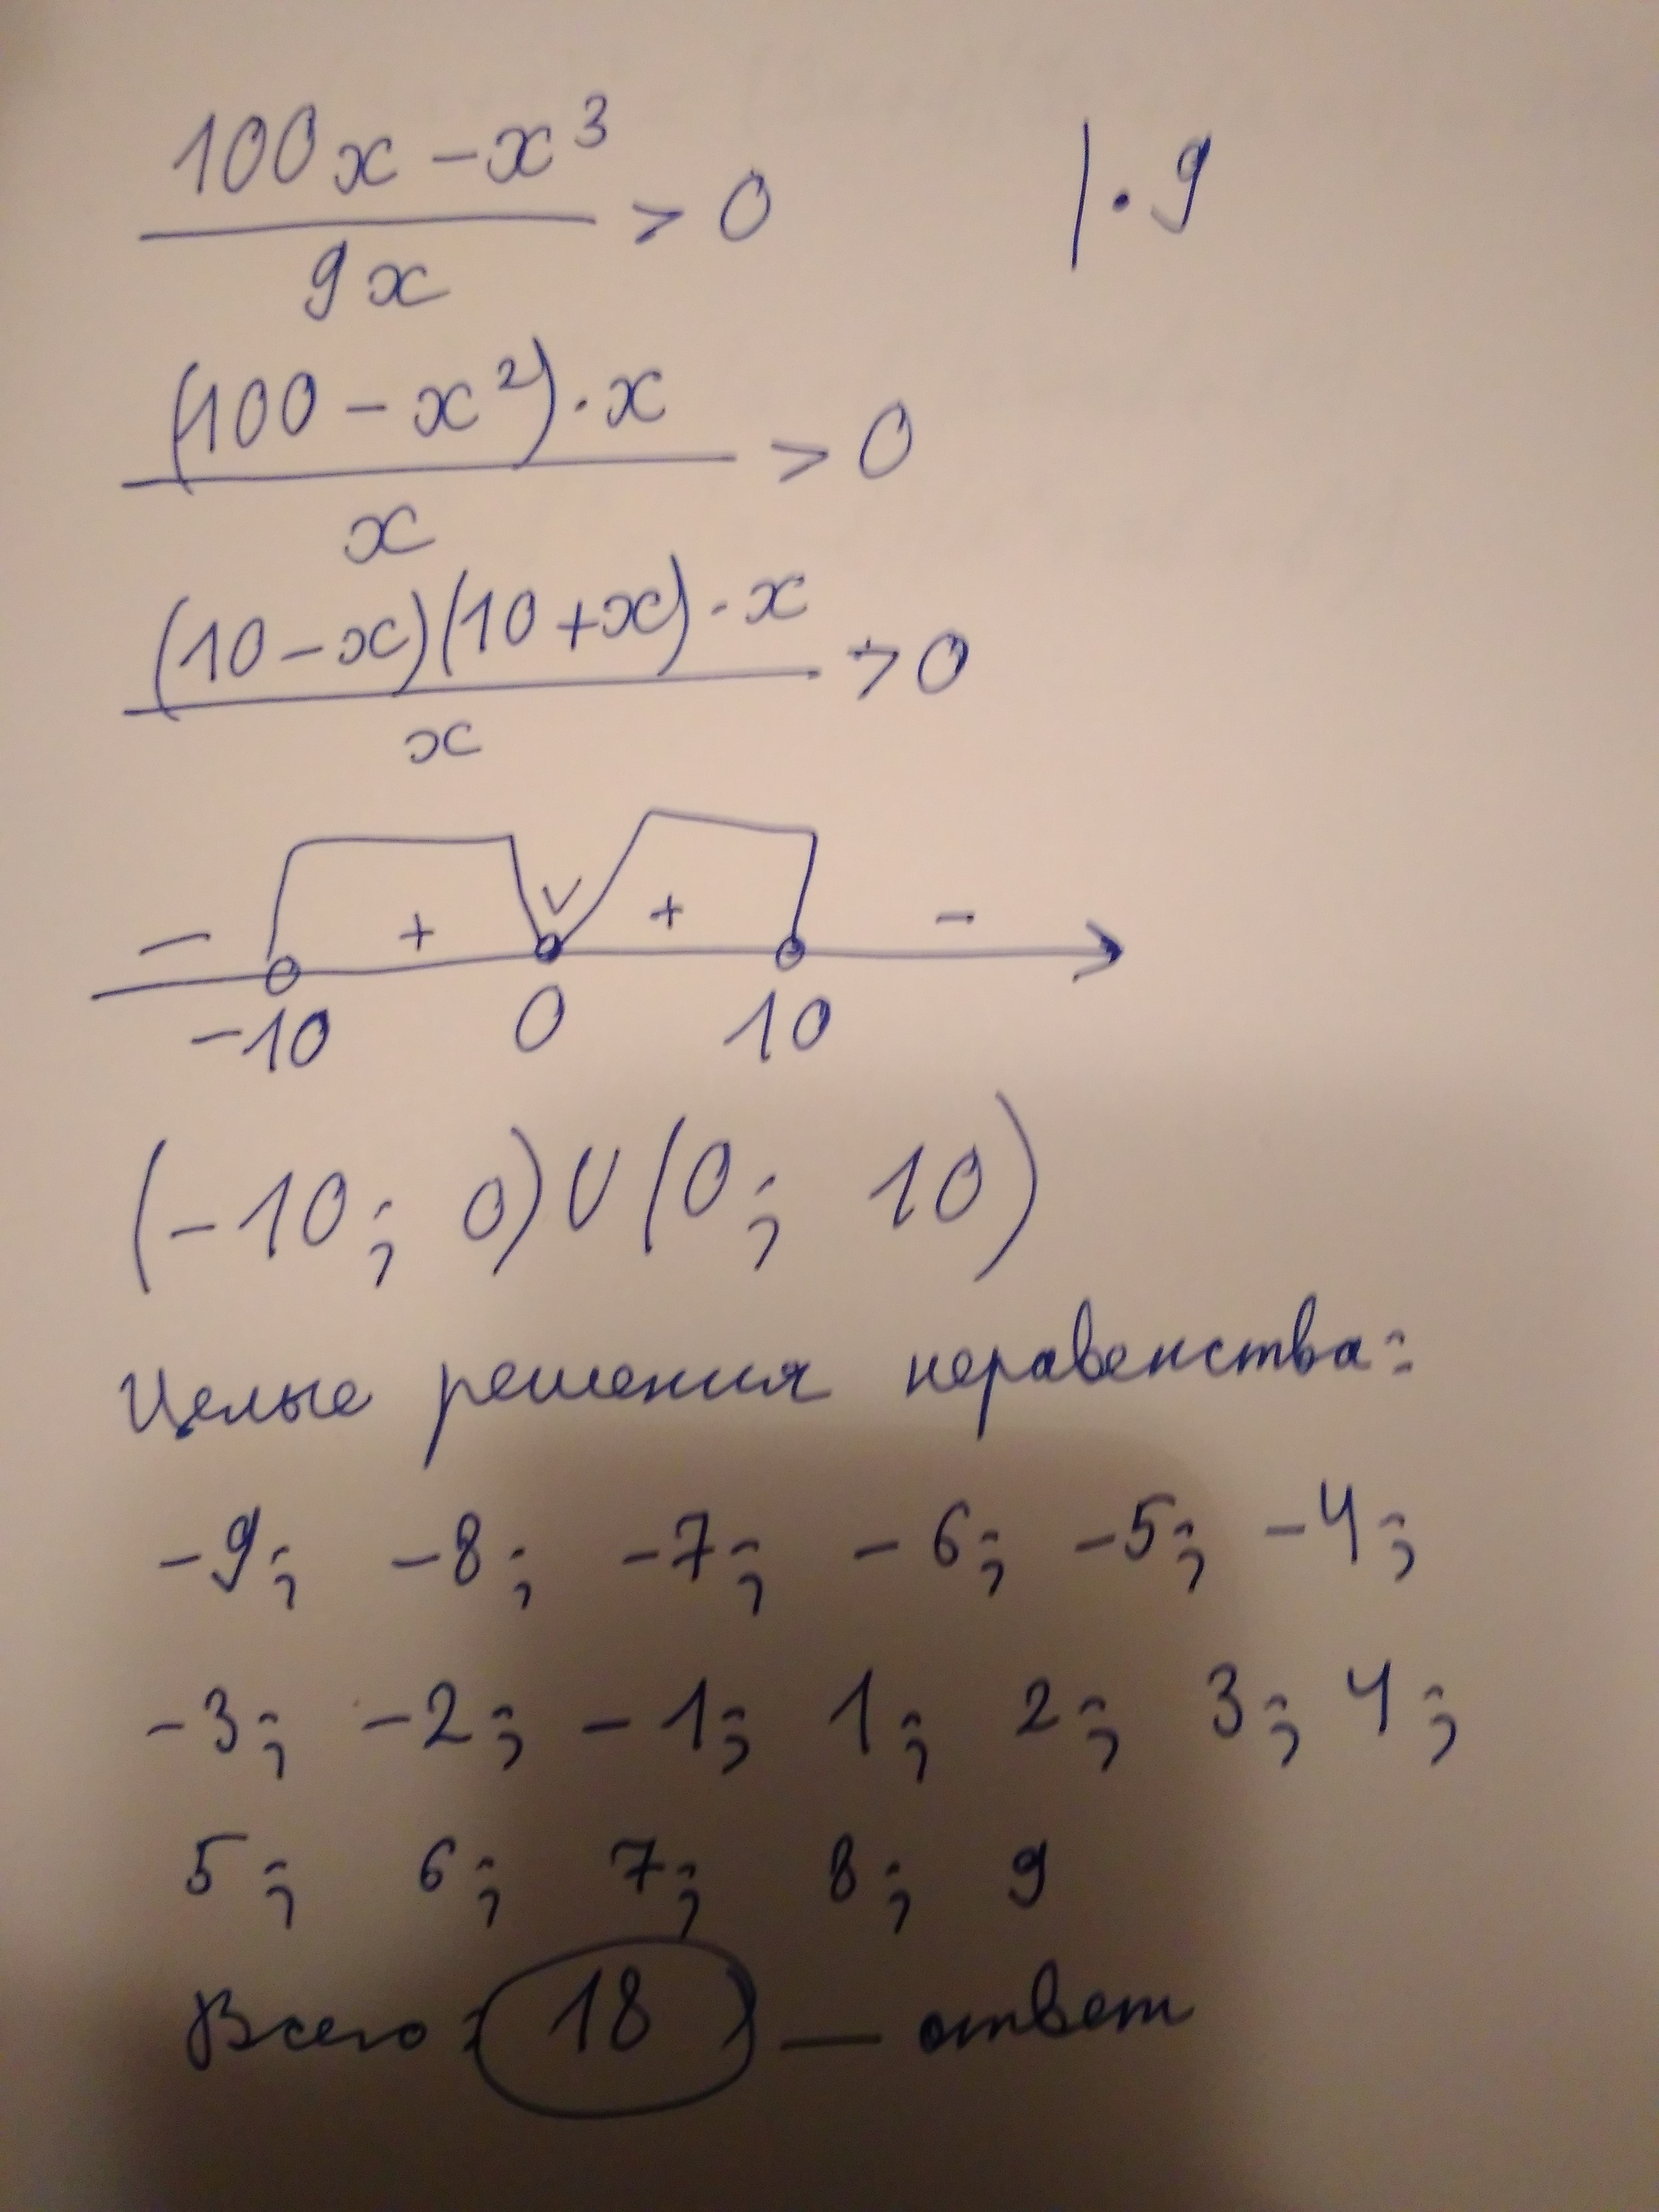 100x - x³
———— > 0 | · 9
9x
(100 - x²) · x
———— > 0
x
(10 - x)(10 + x) · x
———— > 0
x
− + v + −
-10 0 10
(-10; 0) ∪ (0; 10)
Целые решения неравенства:
-9; -8; -7; -6; -5; -4;
-3; -2; -1; 1; 2; 3; 4;
5; 6; 7; 8; 9
Всего: 18 — ответ